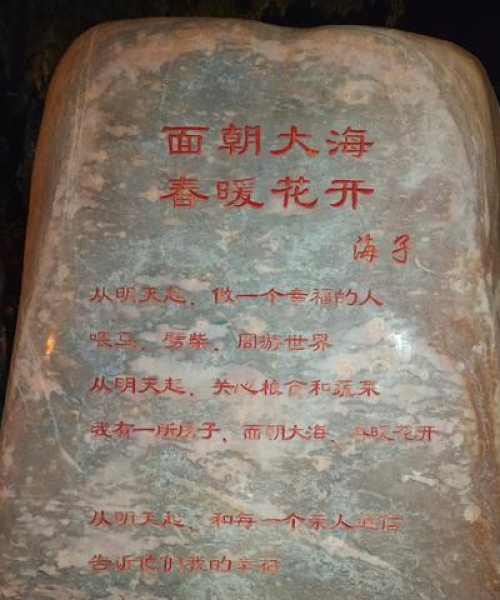 面朝大海
春暖花开
海子
从明天起，做一个幸福的人
喂马、劈柴，周游世界
从明天起，关心粮食和蔬菜
我有一所房子，面朝大海，春暖花开
从明天起，和每一个亲人通信
告诉他们我的幸福